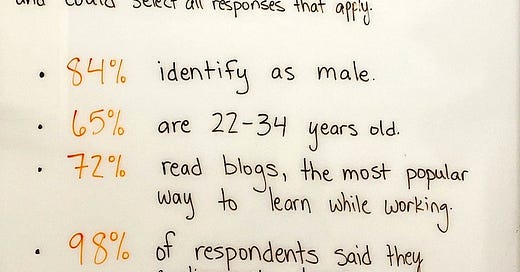 and could select all responses that apply.
• 84% identify as male.
• 65% are 22-34 years old.
• 72% read blogs, the most popular
way to learn while working.
• 98% of respondents said they